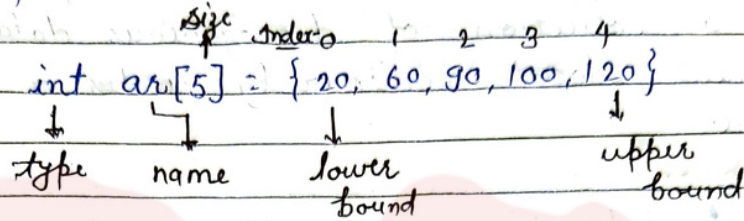 size
Index-0 1 2 3 4
int ar[5] = { 20, 60, 90, 100, 120}
type name lower bound upper bound